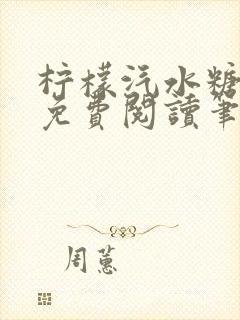 柠檬汽水糖
免費閱讀筆
周蕙